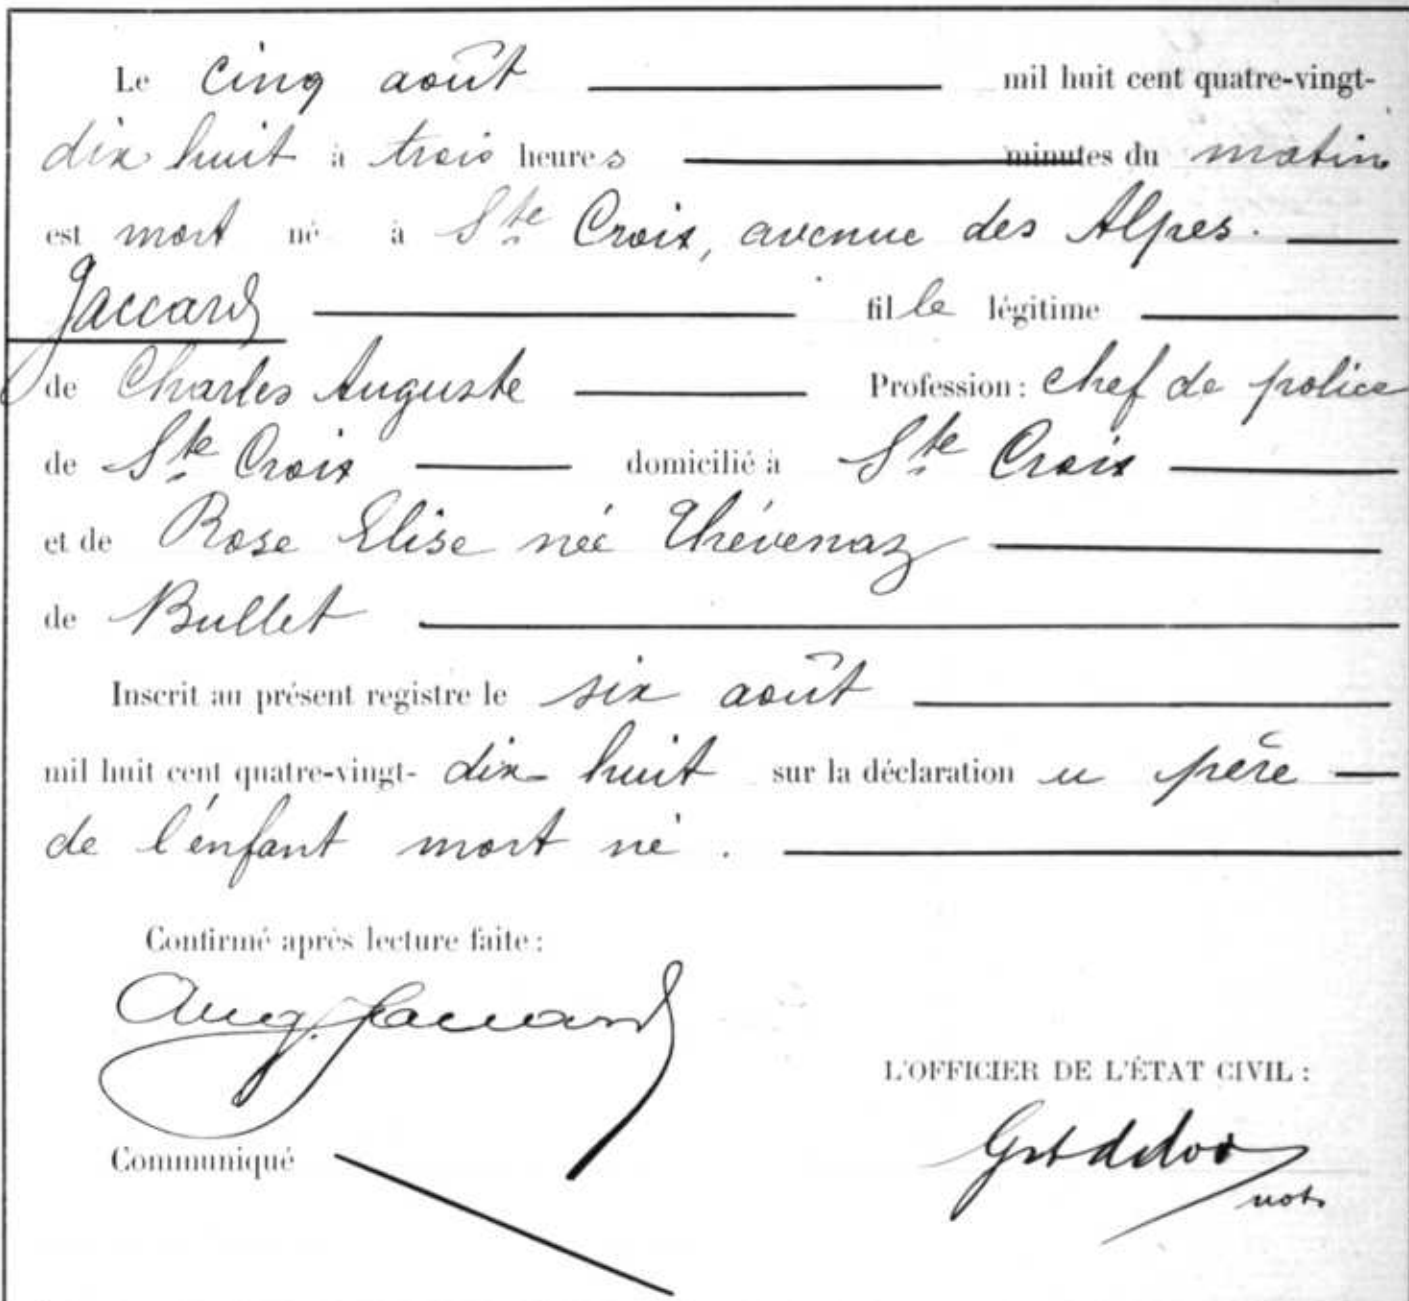 Le cinq août mil huit cent quatre-vingt-
dix huit à trois heures minutes du matin
est mort né à Ste Croix, avenue des Alpes.
Jaccard fille légitime
de Charles Auguste Profession: chef de police
de Ste Croix domicilié à Ste Croix
et de Rose Elise née Thévenaz
de Bullet
Inscrit au présent registre le six août
mil huit cent quatre-vingt-dix huit sur la déclaration u père
de l'enfant mort né.
Confirmé après lecture faite:
Aug. Jaccard
L'OFFICIER DE L'ÉTAT CIVIL:
Communiqué
not.